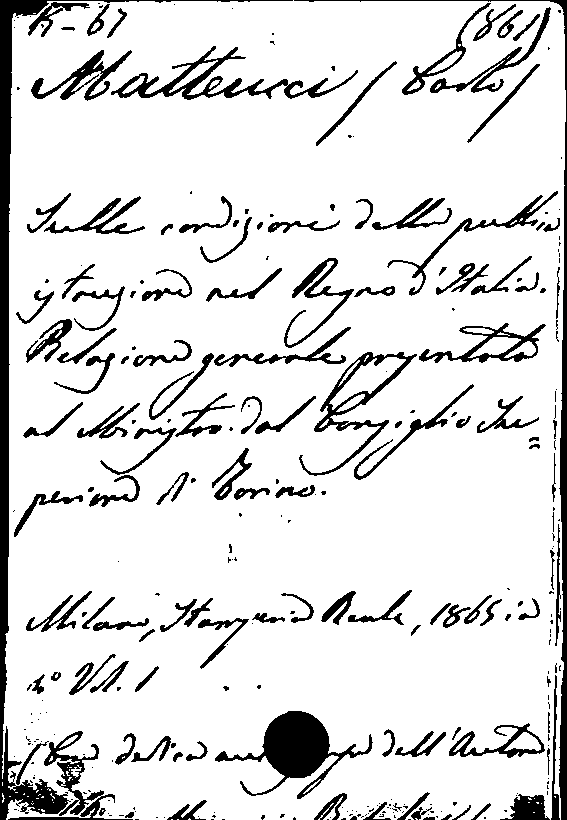 K-67 (861)
Matteucci / Carlo /
Sulle condizioni della pubblica
istruzione nel Regno d'Italia.
Relazione generale presentata
al Ministro dal Consiglio Su=
periore di Torino.
Milano, Stamperia Reale, 1865 in
4º Vol. 1
(Con dedica dell'Autore